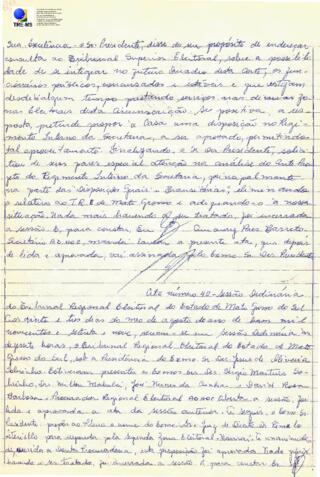 TRE-MS
Sua Excelência o Sr. Presidente, disse do seu propósito de endereçar
consulta ao Tribunal Superior Eleitoral, sobre a possibili-
dade de se integrar no futuro Quadro desta Corte, os fun-
cionários públicos, concursados e efetivos e que estejam
há algum tempo prestando serviços nas diversas Zo-
nas Eleitorais desta Circunscrição. Se positiva a res-
posta, pretende propor à Casa uma disposição no Regi-
mento Interno da Secretaria, a ser aprovado, permitindo
tal aproveitamento. Finalizando, o Sr. Presidente, solici-
tou de seus pares especial atenção na análise do Ante-Pro-
jeto do Regimento Interno da Secretaria, principalmente
na parte das Disposições Gerais e Transitórias; eliminando
o relativo ao T.R.E. de Mato Grosso e adequando-o à nossa
situação. Nada mais havendo a ser tratado, foi encerrada
a sessão. E, para constar Eu
Secretário ad hoc, mandei lavrar a presente ata, que depois
de lida e aprovada, vai assinada pelo Exmo. Sr. Des. Presidente.
Ata número 40 - Sessão Ordinária
do Tribunal Regional Eleitoral do Estado de Mato Grosso do Sul
Aos vinte e dois dias do mês de agosto do ano de hum mil
novecentos e setenta e nove, reuniu-se em Sessão Ordinária às
dezessete horas, o Tribunal Regional Eleitoral do Estado de Mato
Grosso do Sul, sob a Presidência do Exmo. Sr. Des. Jesus de Oliveira
Sobrinho. Estiveram presentes os Exmos. Srs. Des. Sérgio Martins So-
brinho, Drs. José Nunes da Cunha e
Barbosa, Procurador Regional Eleitoral ad hoc. Aberta a sessão, foi
lida e aprovada a ata da sessão anterior. A seguir, o Exmo. Sr.
Presidente, propôs ao Pleno o nome do Exmo. Sr. Juiz de Direito
para responder pela Zona Eleitoral
a Douta Procuradoria, esta proposição foi aprovada. Nada mais
havendo a ser tratado, foi encerrada a sessão. E para constar Eu